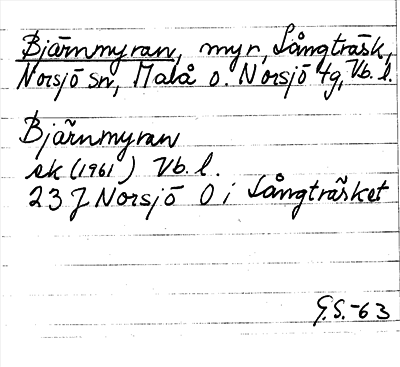 Björnmyran, myr, Långträsk,
Norsjö sn, Malå o. Norsjö tg, Vb. l.
Björnmyran
ek (1961) Vb. l.
23 J Norsjö O i Långträsket
G.S.-63